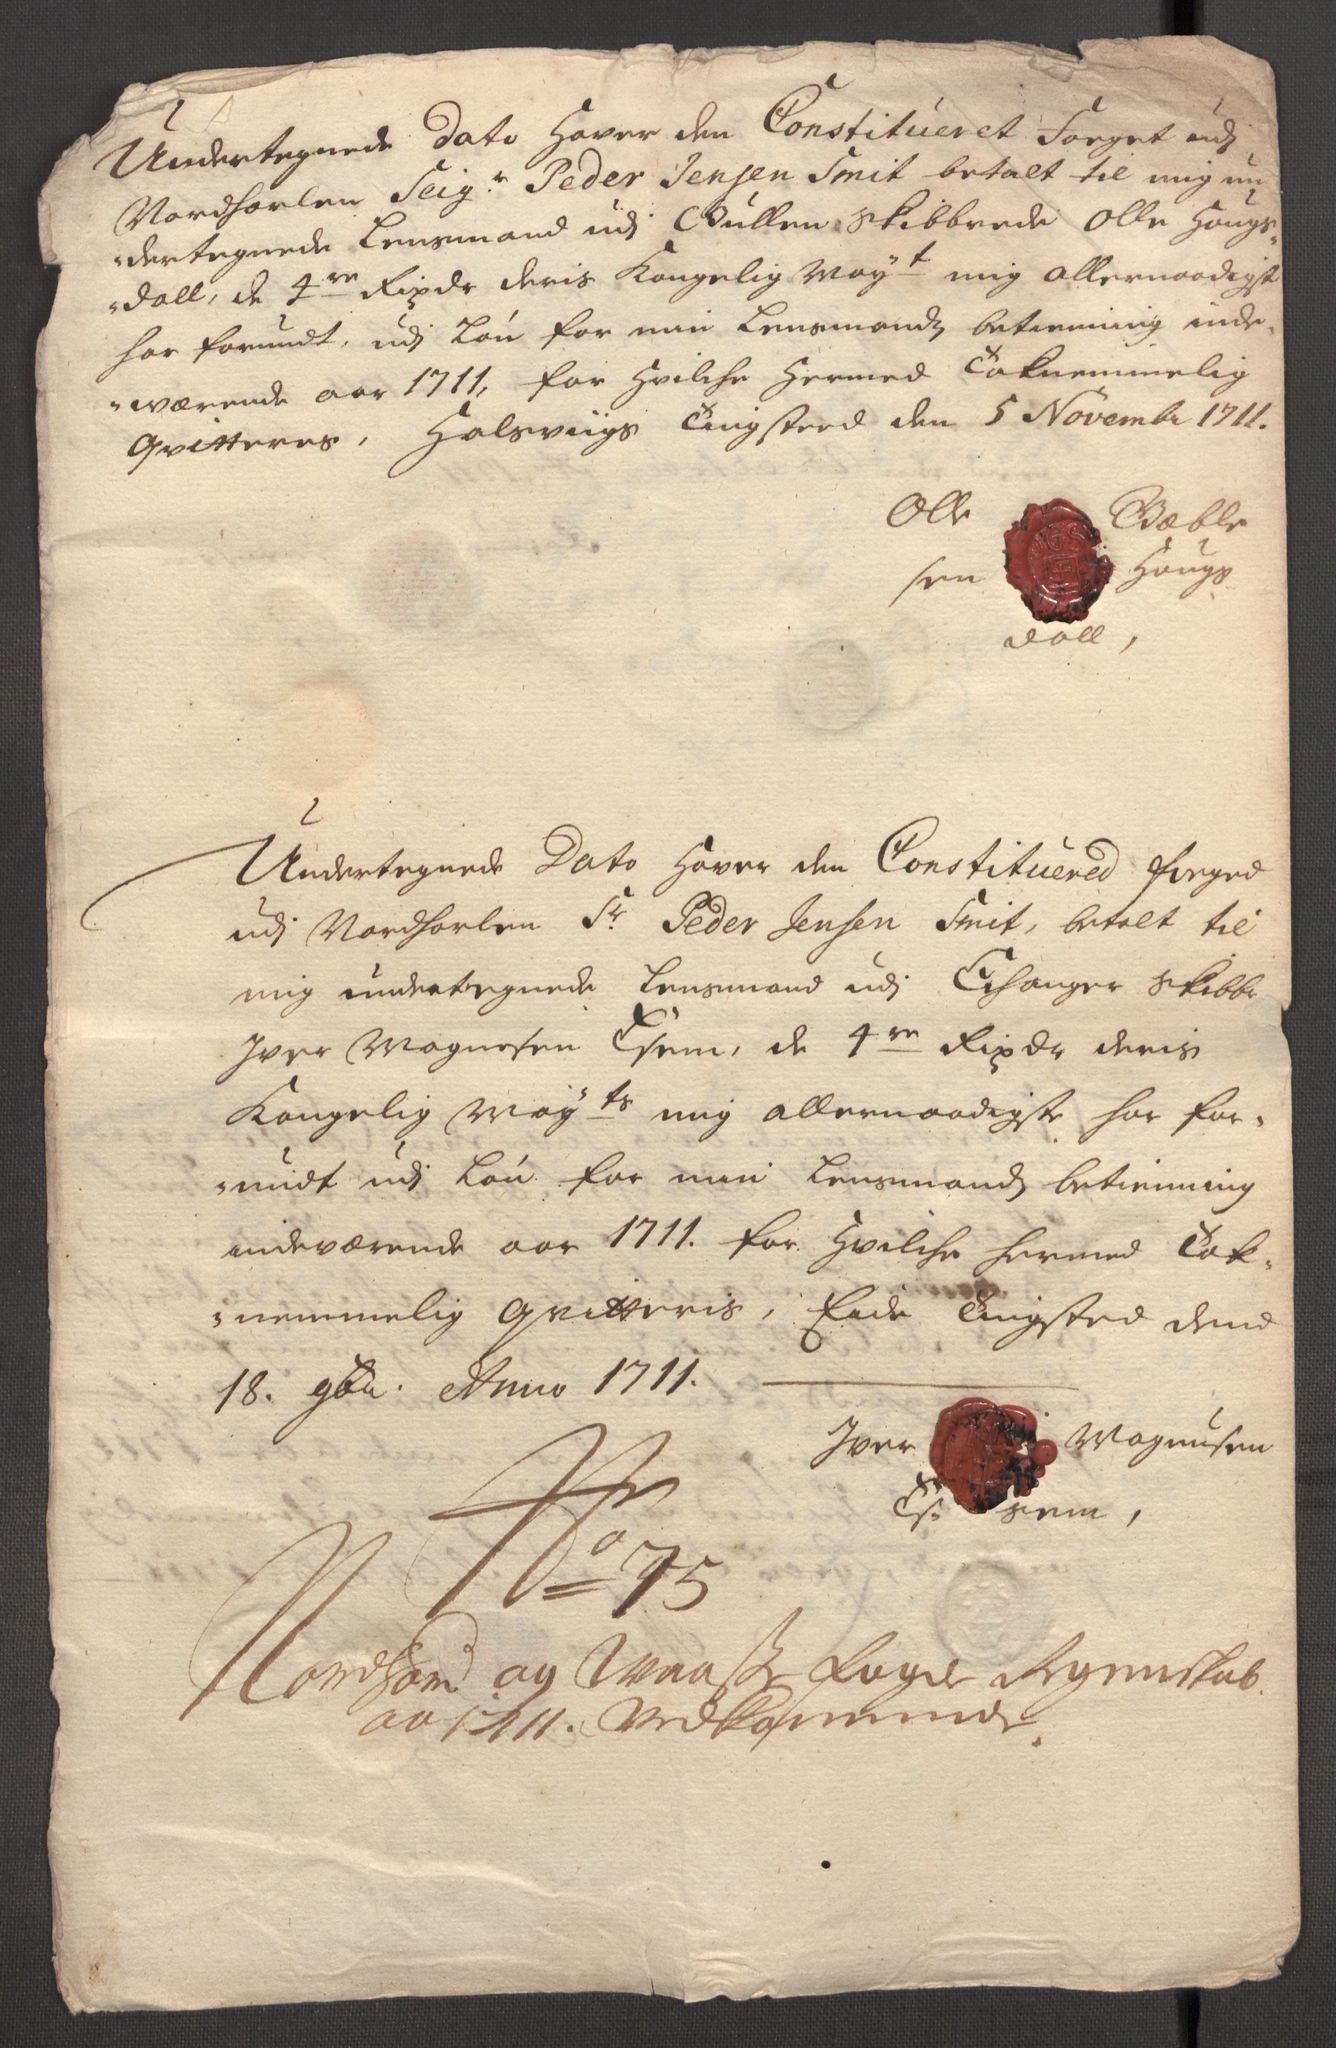 Undertegnede Dato Hafver den Constitueret Foeget udj
Nordhorlen Seigr. Peder Jensen Smit betalt til mig un
-dertegnede Lensmand udj Gullen Skibbrede Olle Hougs-
-dall, de 4re Rixdr deris Kongelig Mayt mig allernaadigst
har forundt, udj Lön for min Lensmands betienning inde-
-wærende aar 1711, for Hvilche Hermed Taknemmelig
Qvitteres, Halsviigs Tingsted den 5 Novembr 1711.
Olle Bæble
sen Hougs
dall,
Undertegnede Dato Hafver den Constituered foeged
udj Nordhorlen Sr. Peder Jensen Smit, betalt til
mig undertegnede Lensmand udj Echanger Skibbr
Iver Magnesen Thsem, de 4re Rixdr deris
Kongelig Mayts mig allernaadigste har for-
-undt udj Lön for min Lensmands betienning
indeværende aar 1711. for Hvilche hermed Tak-
-nemmelig Qvitteris, Eide Tingsted dend
18. 9br. Anno 1711.
Iver Magnusen
sem,
No 75
Nordhord og Waasse Fogde Regenskab
ao 1711. Vedkommende.